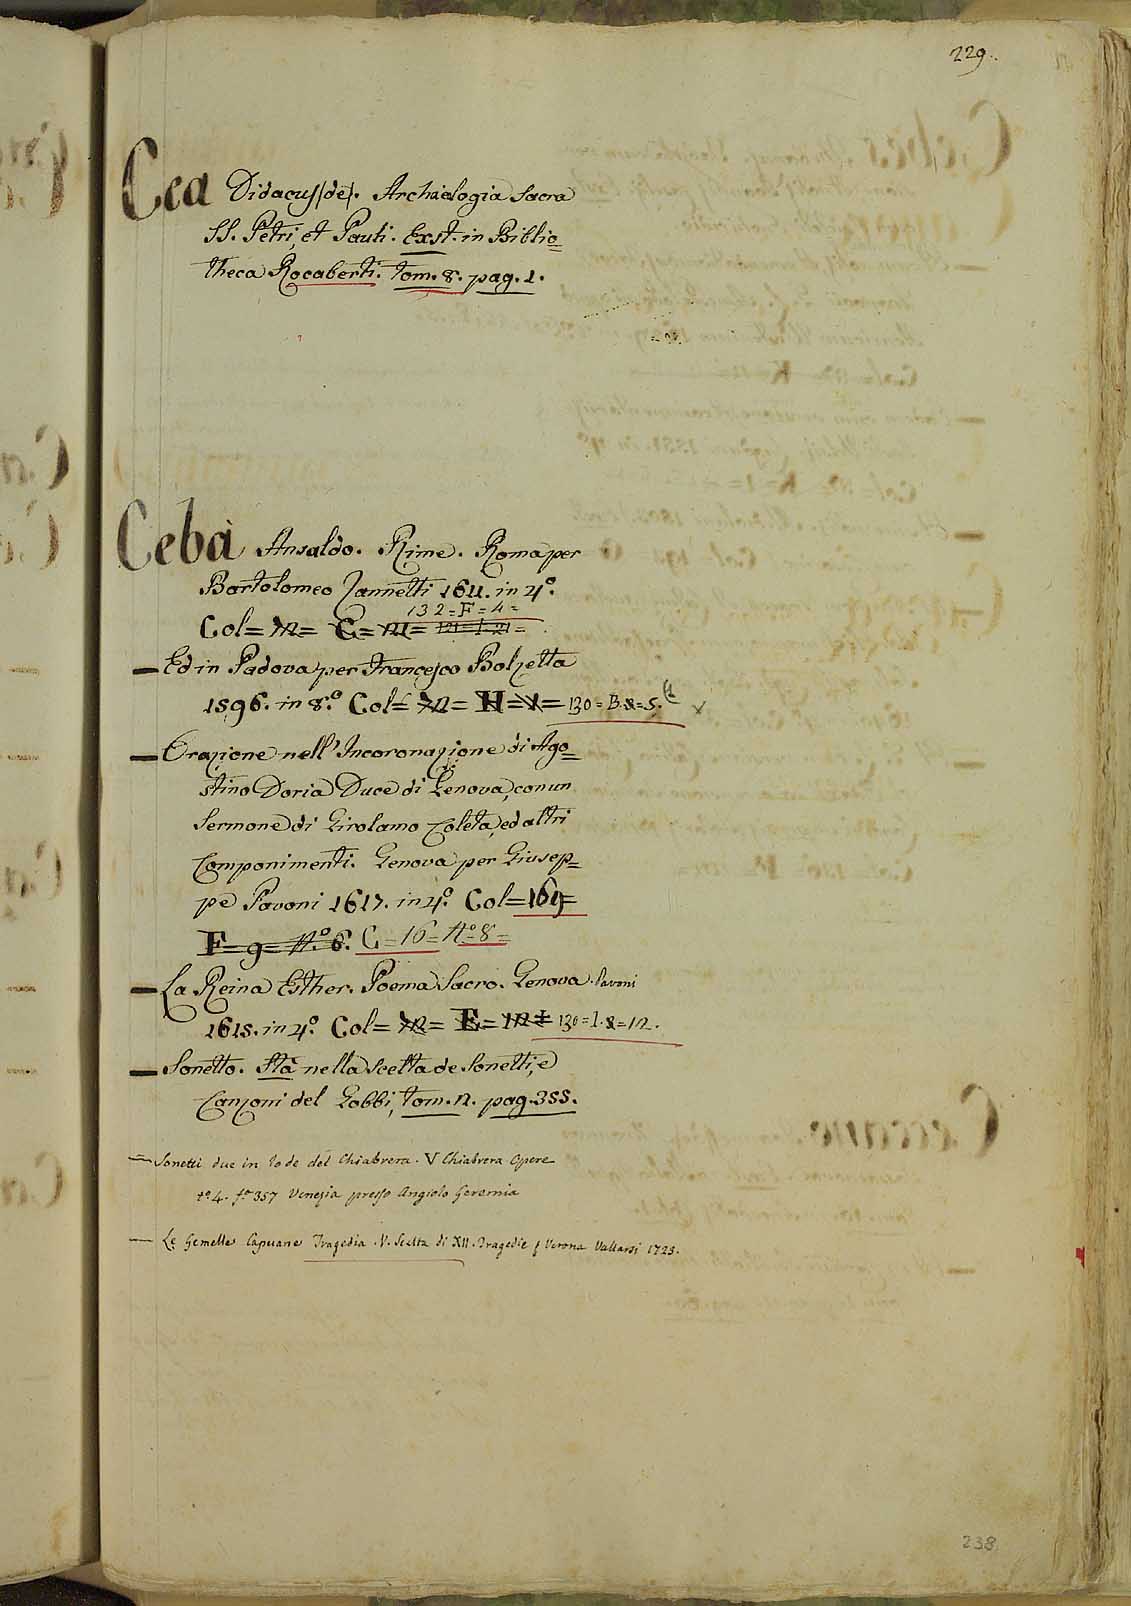 229.
Cea Didacus (de). Archaelogia Sacra
SS. Petri, et Pauli. Exst. in Biblio=
theca Rocaberti. tom. 8. pag. 1.
Cebà Ansaldo. Rime. Roma per
Bartolomeo Zannetti 1611. in 4.º
132=F=4=
Col=
— Ed in Padova per Francesco Bolzetta
1596. in 8.º Col= 130=B.8=5.
— Orazione nell'Incoronazione di Ago=
stino Doria Duce di Genova, con un
Sermone di Girolamo Coleta, ed altri
Componimenti. Genova per Giusep=
pe Pavoni 1617. in 4.º Col=169=
F=9=N.º 6. C=16=N.º 8=
— La Reina Esther. Poema Sacro. Genova. Pavoni
1615. in 4.º Col= 130=I.8=12.
— Sonetto. Stà nella Scelta de Sonetti, e
Canzoni del Gobbi, tom. 2. pag. 355.
— Sonetti due in lode del Chiabrera. V Chiabrera Opere
tº 4. fº 357 Venezia presso Angiolo Geremia
— Le Gemelle Capuane Tragedia. V. Scelta di XII. Tragedie Verona Vallarsi 1723.
238